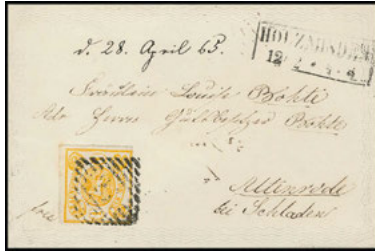 d. 28. April 65.
HOLZMINDEN
12
Fräulein Louise Bohte
Adr. Herrn Bohte
Altenrode
bei Schladen